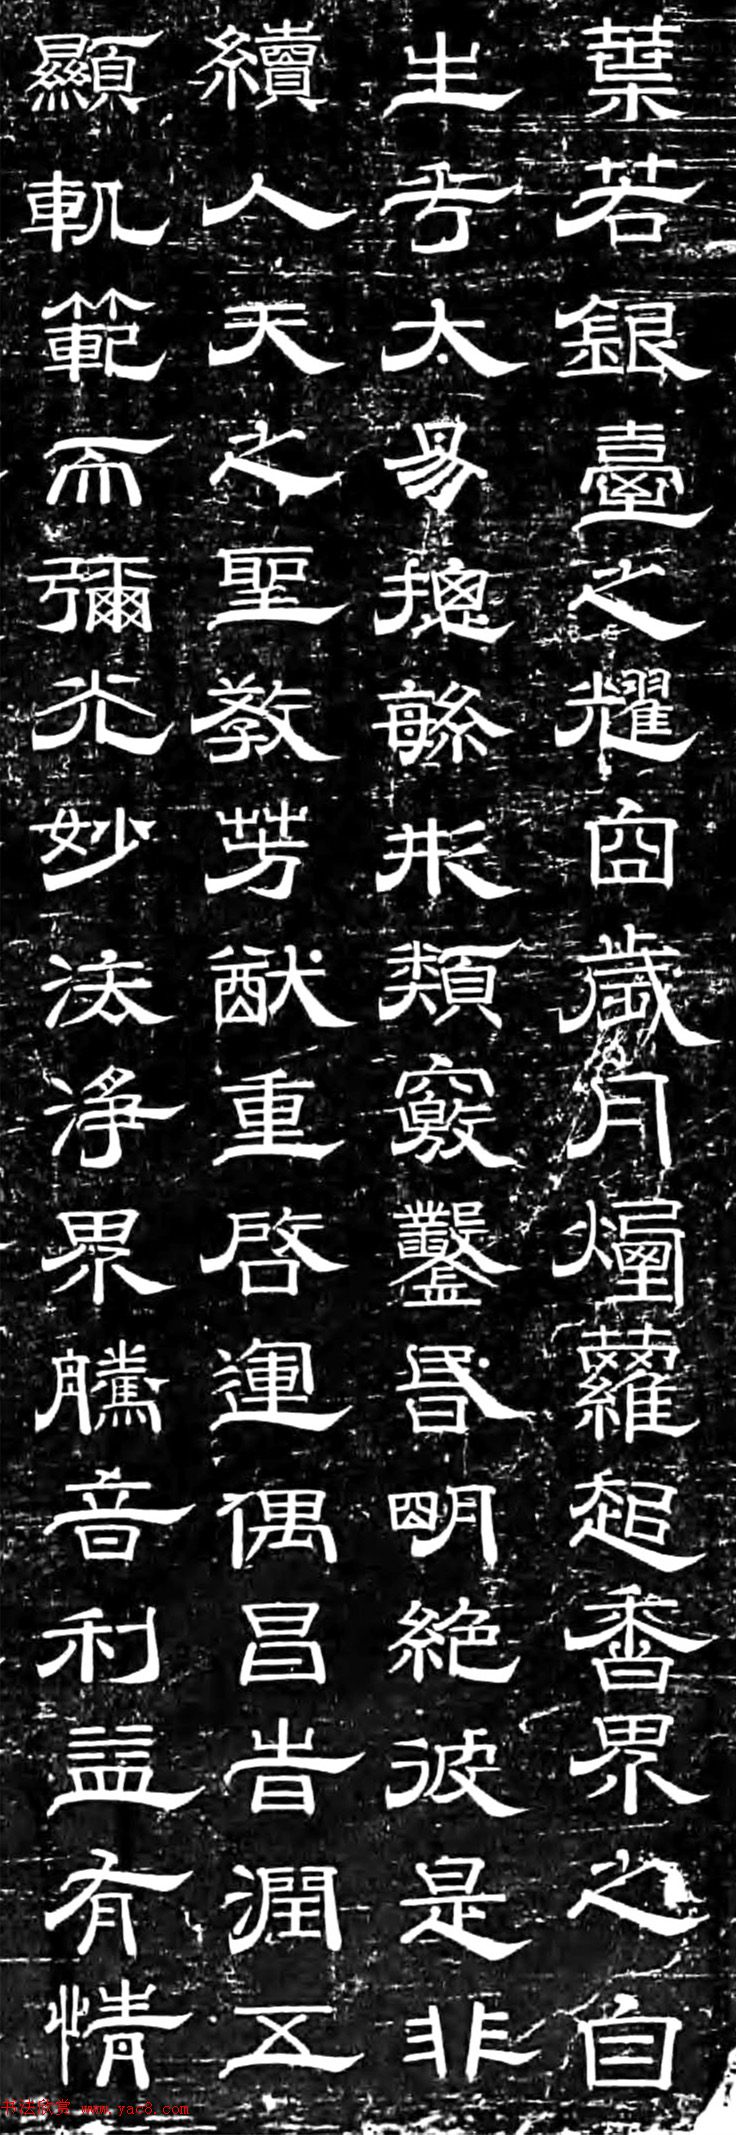 葉若銀臺之耀囧歲月煙蘿起香界之白
生兮太易摠緐形類竅鑿昬明絕彼是非
續人天之聖教芳猷重啓運偶昌旹潤五
顯軌範而彌光妙法淨界騰音利益有情
书法欣赏 www.yac8.com